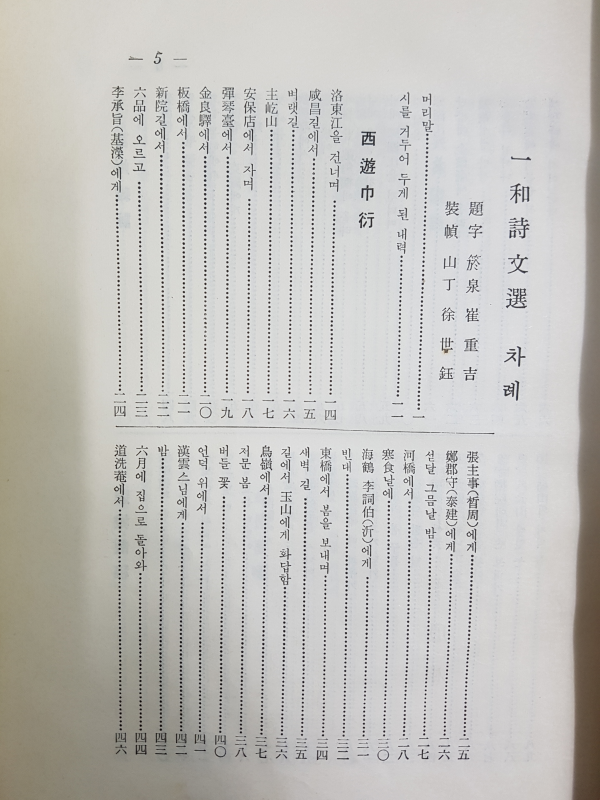 — 5 —
一和詩文選 차례
題字 於泉 崔重吉
裝幀 山丁 徐世鈺
머리말 一
시를 거두어 두게 된 내력 一一
西遊巾衍
洛東江을 건너며 一四
咸昌길에서 一五
벼랫길 一六
主屹山 一七
安保店에서 자며 一八
彈琴臺에서 一九
金良驛에서 二〇
板橋에서 二一
新院길에서 二二
六品에 오르고 二三
李承旨(基濚)에게 二四
張主事(晳周)에게 二五
鄭郡守(泰建)에게 二六
섣달 그믐날 밤 二七
河橋에서 二八
寒食날에 三〇
海鶴 李詞伯(沂)에게 三一
빈대 三二
東橋에서 봄을 보내며 三四
새벽 길 三五
길에서 玉山에게 화답함 三六
鳥嶺에서 三七
저문 봄 三八
버들 꽃 四〇
언덕 위에서 四一
漢雲스님에게 四二
밤 四三
六月에 집으로 돌아와 四四
道洗菴에서 四六